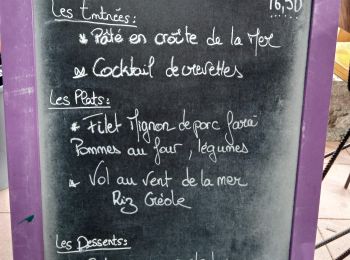 Les Entrées: 16,50
* Pâté en croûte de la Mer
* Cocktail de crevettes
Les Plats:
* Filet Mignon de porc
Pommes au four, légumes
* Vol au vent de la mer
Riz Créole
Les Desserts: